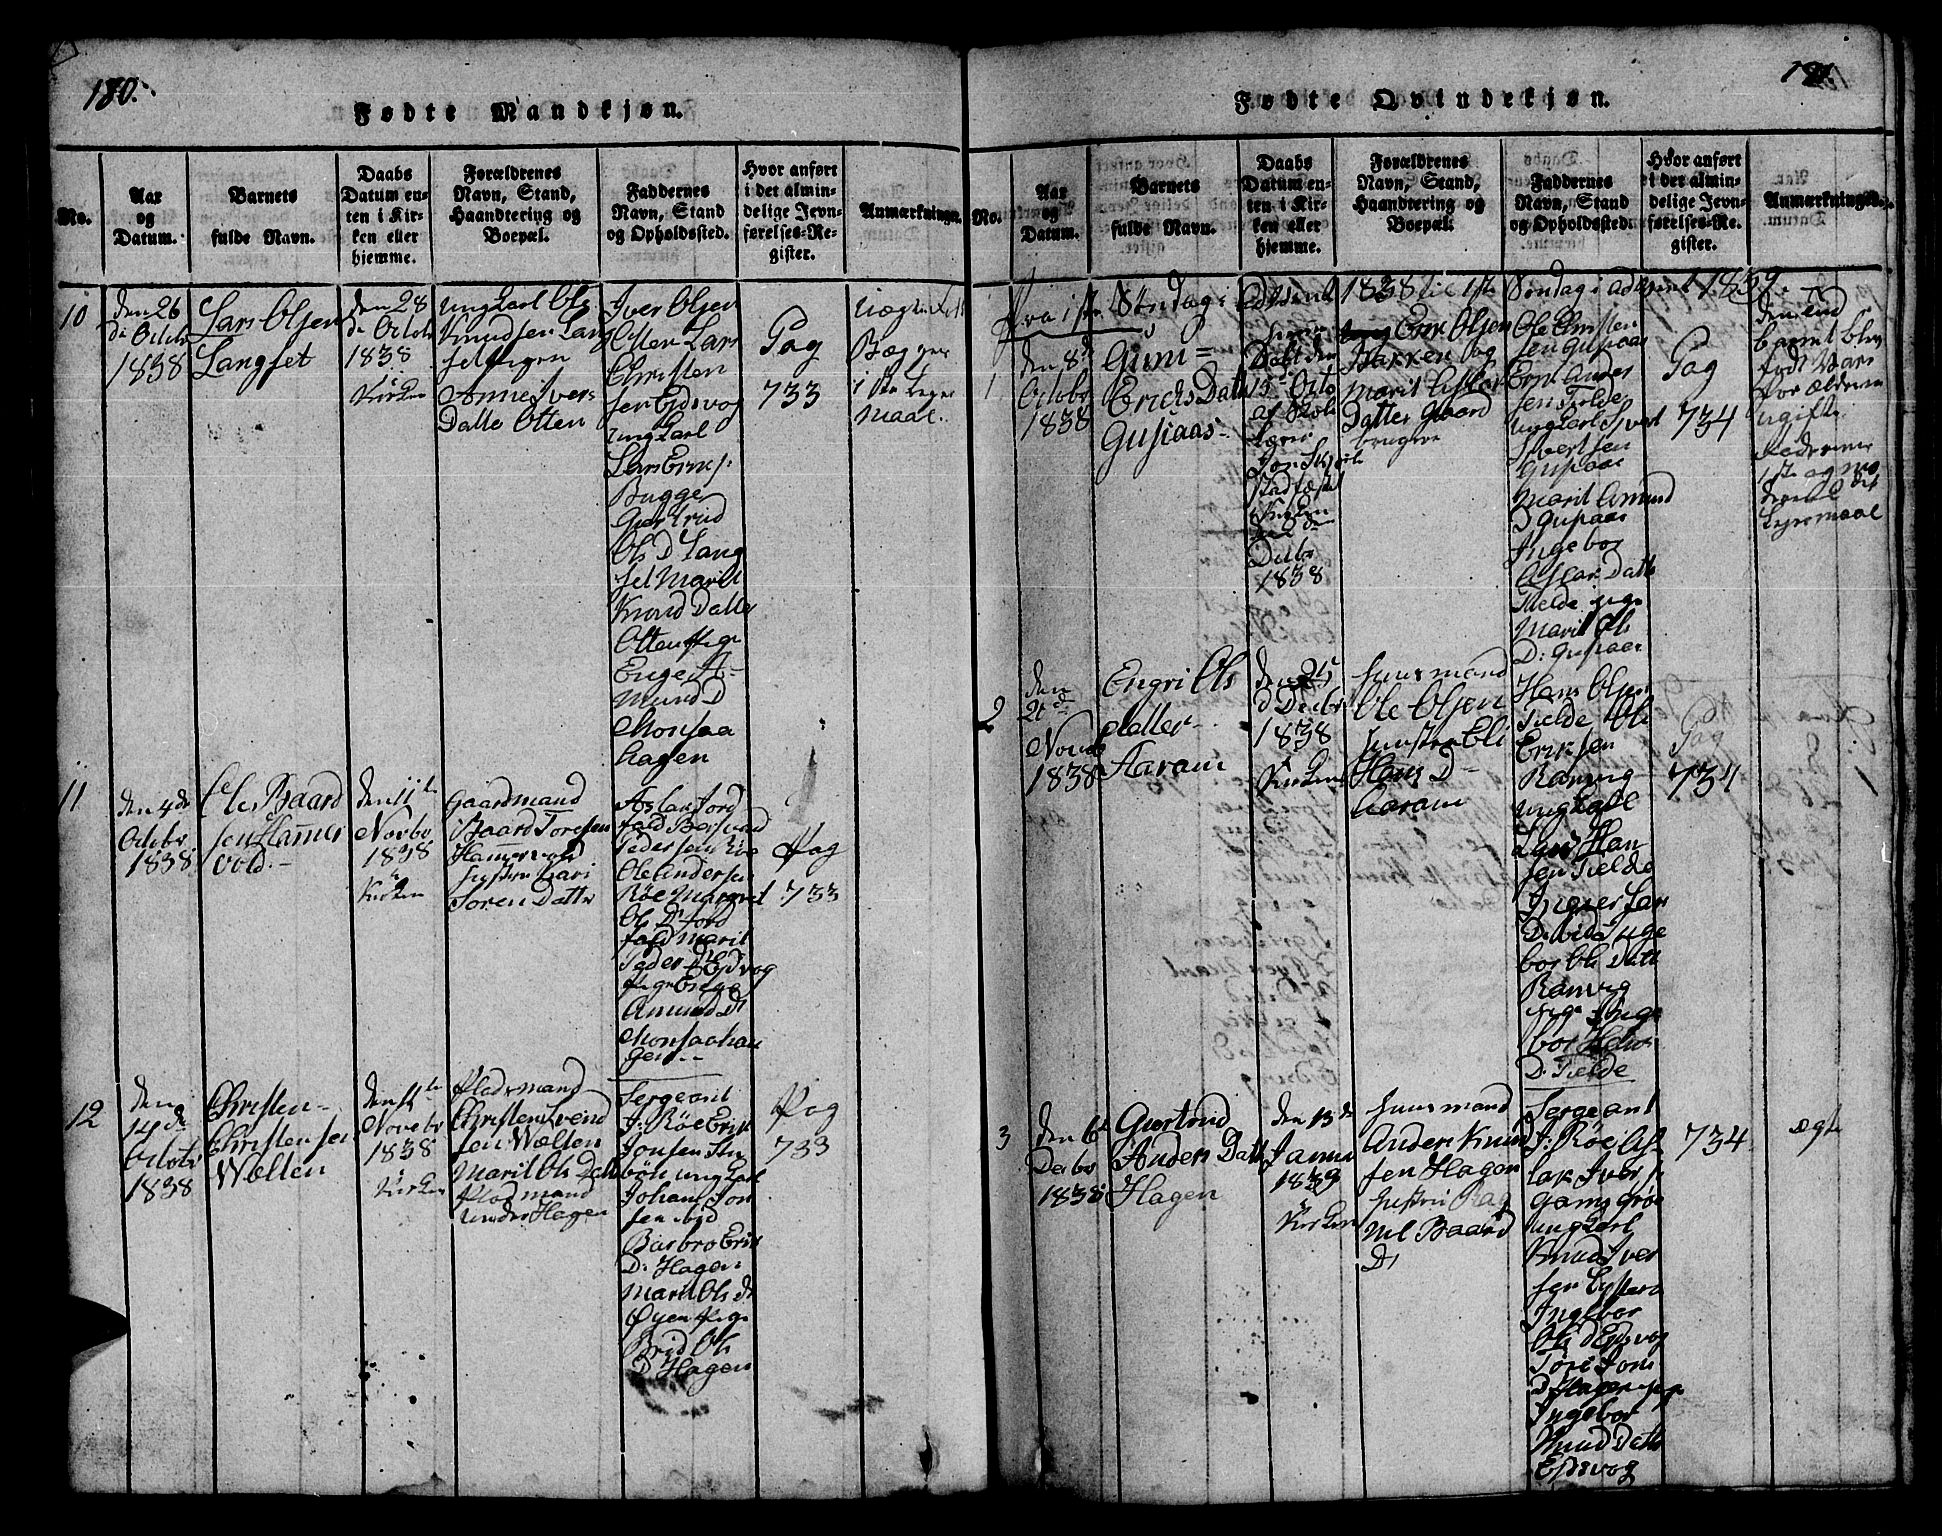 180.
Fødte Mandkjøn.
No.
Aar
og
Datum.
Barnets
fulde Navn.
Daabs
Datum en-
ten i Kir-
ken eller
hjemme.
Forældrenes
Navn, Stand,
Haandtering og
Boepæl.
Faddernes
Navn, Stand
og Opholdssted.
Hvor anført
i det almin-
delige Jevn-
førelses-Re-
gister.
Anmærkninger.
10
den 26
d: Octobr
1838
Lars Olsen
Langset
den 28
d: Octobr
1838
Kirken
Ungkarl Ole
Knudsen Lang
set Pigen
Anne Ivers
Datte Otten
Iver Olsen
Otten Lars
Christen
sen Eidsvog
Ungkarl
Lars
Bugge
Gurtrud
Ols D Lang
set Marit
Knud Datter
Otten Pige
Enge A-
mund D
Monsaa
hagen
Pag
733
Begges
1ste Leger
maal.
11
den 4de
Octobr
1838
Ole Baard
sen Hammer
vold.
den 11te
Novbr
1838
Kirken
Gaardmand
Baard Toresen
Hammervold
Hustru Kari
Soren Datter
Aslak Jord
fald
Peder sen Röe
Ole Andersen
Röe Margret
Ols D Jord
fald Marit
Peder D Eidsvog
Pige Enge
Amund D
Monsaahau
gen
Pag
733
12
den
14de
Octobr
1838
Christen
Christensen
Wælten
den 11te
Novebr
1838
Kirken
Pladsmand
Christen Svend
sen Wælten
Marit Ols Datte
Pladsmand
under Hagen
Sergeant
J: Röe Erik
Jonsen Stu
böe ungkarl
Johans Jon
sen ibid
Barbro Erik
D: Hagen
Marit Ols D
Øyen Pige
Brid Ols
D Hagen
Pag
733
181.
Fødte Qvindekjøn.
No.
Aar
og
Datum.
Barnets
fulde Navn.
Daabs
Datum en-
ten i Kir-
ken eller
hjemme.
Forældrenes
Navn, Stand,
Haandtering og
Boepæl.
Faddernes
Navn, Stand
og Opholdssted.
Hvor anført
i det almin-
delige Jevn-
førelses-Re-
gister.
Anmærkninger.
Fra 1ste Søndag i Advent 1838 til 1ste Søndag i Advent 1839.
1
den 8d
Octobr
1838
Guni=
Erichs Datt
Gusiaas
hjeme
Døbt den
15 Octo
af Skole
Lærer
Jon
Stadfæstet
Kirken
den 2den
Debr
1838
Erik Olsen
Bakken og
Marit Aslak
Datter Gaard
brugere
Ole Christen
sen Gusiaas
Erik Ander
sen Tielde
Ungkarl Sivert
Sivertsen
Gusiaas
Marit Amund
D Gusiaas
Ingebor
Aslak Datt
Tielde pige
Marit Ols
D: Gusiaas
Pag
734
barnet blev
født Vare
Forældrene
ugifte
Faderens
1ste og Mo
derens 2det
Lejermaal
2
den
21de
Novbr
1838
Engri Ols
datter
Aaram
den 25
d Debr
1838
Kirken
Huusmand
Ole Olsen
Hustru Eli
Hans D
Aaram
Hans Olsen
Tielde Ole
Eriksen
Ranvig
Ungkarl
Lars Han
sen Tielde
Inger Lar
D: ibid Inge
bor Ols Datt
Ranvig
Pige Inge
bor Hans
D: Tielde
Pag
734
3
den 6te
Debr
1838
Gurtrud
Anders Datt
Hagen
den 13de
Janua
1839
Kirken
Huusmand
Anders Knud
sen Hagen
Hustru Rag
nil Baard
D
Sergeant
J: Röe As
lak Ivers
Gamsgröe
Ungkarl
Knud Iver
sen
Ingebor
Ols D Eidsvog
Tori Jons
D Hagen pige
Ingebor
Knud Datt
Eidsvog
734
ægte